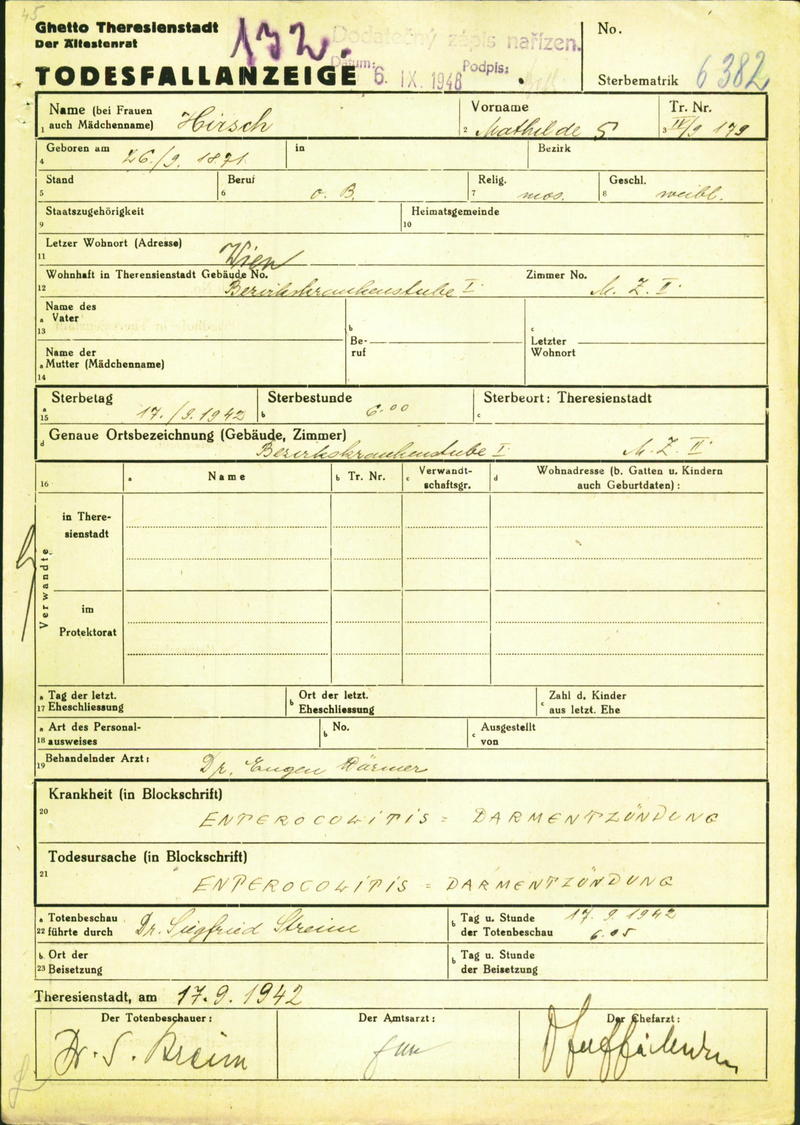 45
Ghetto Theresienstadt
Der Ältestenrat
132.
Dodatečný zápis nařízen.
TODESFALLANZEIGE
Datum: 6. IX. 1948 Podpis:
No.
Sterbematrik 6382
Name (bei Frauen auch Mädchenname) Hirsch
1
Vorname
2 Mathilde S
Tr. Nr.
3 IV/9 179
Geboren am 26./9. 1871 in Bezirk
4
Stand Beruf Relig. Geschl.
5 6 o. B. 7 mos. 8 weibl.
Staatszugehörigkeit Heimatsgemeinde
9 10
Letzer Wohnort (Adresse)
11 Wien
Wohnhaft in Theresienstadt Gebäude No. Zimmer No.
12 Bezirkskrankenstube I. M. Z. II.
Name des
a Vater
13
b
Be-
ruf
c
Letzter
Wohnort
Name der
a Mutter (Mädchenname)
14
Sterbetag Sterbestunde Sterbeort: Theresienstadt
a 15 17./9. 1942 b 6.00 c
d Genaue Ortsbezeichnung (Gebäude, Zimmer)
Bezirkskrankenstube I M. Z. II.
16 a Name b Tr. Nr. c Verwandt-
schaftsgr. d Wohnadresse (b. Gatten u. Kindern
auch Geburtdaten) :
Verwandte
in There-
sienstadt
im
Protektorat
a Tag der letzt.
17 Eheschliessung
b Ort der letzt.
Eheschliessung
c Zahl d. Kinder
aus letzt. Ehe
a Art des Personal-
18 ausweises
b No.
c Ausgestellt
von
Behandelnder Arzt :
19 Dr. Eugen
Krankheit (in Blockschrift)
20 ENTEROCOLITIS = DARMENTZÜNDUNG
Todesursache (in Blockschrift)
21 ENTEROCOLITIS = DARMENTZÜNDUNG
a Totenbeschau
22 führte durch Dr. Siegfried Streim
b Tag u. Stunde 17. 9. 1942
der Totenbeschau 6.05
b. Ort der
23 Beisetzung
b Tag u. Stunde
der Beisetzung
Theresienstadt, am 17. 9. 1942
Der Totenbeschauer: Der Amtsarzt: Der Chefarzt:
Dr. S. Streim